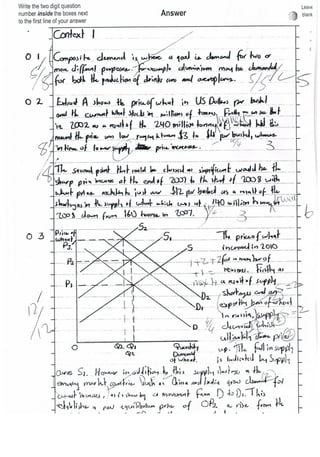 Write two digit question
number inside the boxes next
to the first line of your answer
Answer
Leave
blank
Context 1
0 1
Composite demand is where a good is demand for two or
more different purposes. For example aluminium may be demanded
for both the production of drinks cans and aeroplanes.
5/5
0 2
Extract A shows the price of wheat in US Dollars per bushel
and the current wheat stocks in millions of tonnes. Firstly we see that
in 2002 as a result of the 240 million tonnes of wheat held this
meant the price was low ranging between $3 to $4 per bushel, whereas
in times of lower supply price increases.
The second point that could be classed as significant would be the
sharp price increase at the end of 2007 to the start of 2008 with
wheat price reaching just over $12 per bushel as a result of the
shortages in the supply of wheat which was at 140 million tonnes in
2008 down from 160 tonnes in 2007.
0 3
Price of
wheat
P2
P1
P
S2
S1
S
D2
D1
D
O
Quantity
Demand
of wheat
The price of wheat
increased in 2010
for a number of
reasons. Firstly as
a result of supply
shortages and an
export ban of wheat
in Russia, supply
decreased, which
ultimately drove price
up. The fall in supply
is indicated by Supply
curve S1. However in addition to this supply shortage the
emerging market countries such as China and India grow demand for
wheat increases, as is shown by a movement from D to D1. This
establishes a new equilibrium price of OP2 a rise from the
12/12